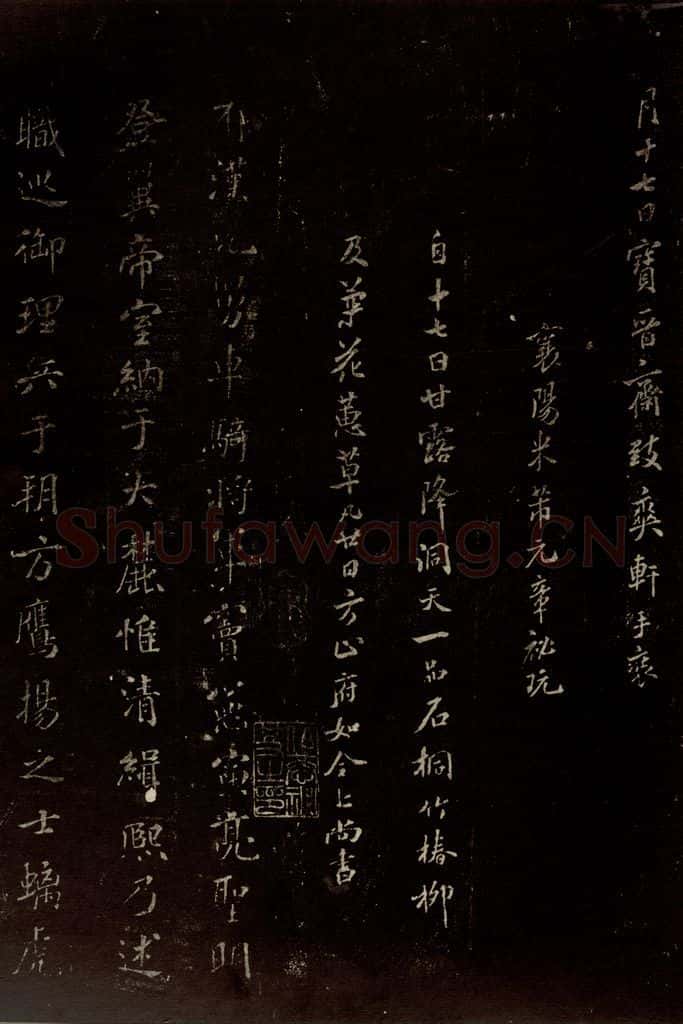 月十七日寶晉齋致爽軒手裝
襄陽米芾元章祕玩
自十七日甘露降洞天一品石桐竹椿柳
及葉花蕙草凡廿日方止府如令上尚書
漢元舅車騎將軍竇憲寅亮聖明
登翼帝室納于大麓惟清緝熙乃述
職巡御理兵于朔方鷹揚之士螭虎
Shufawang.CN